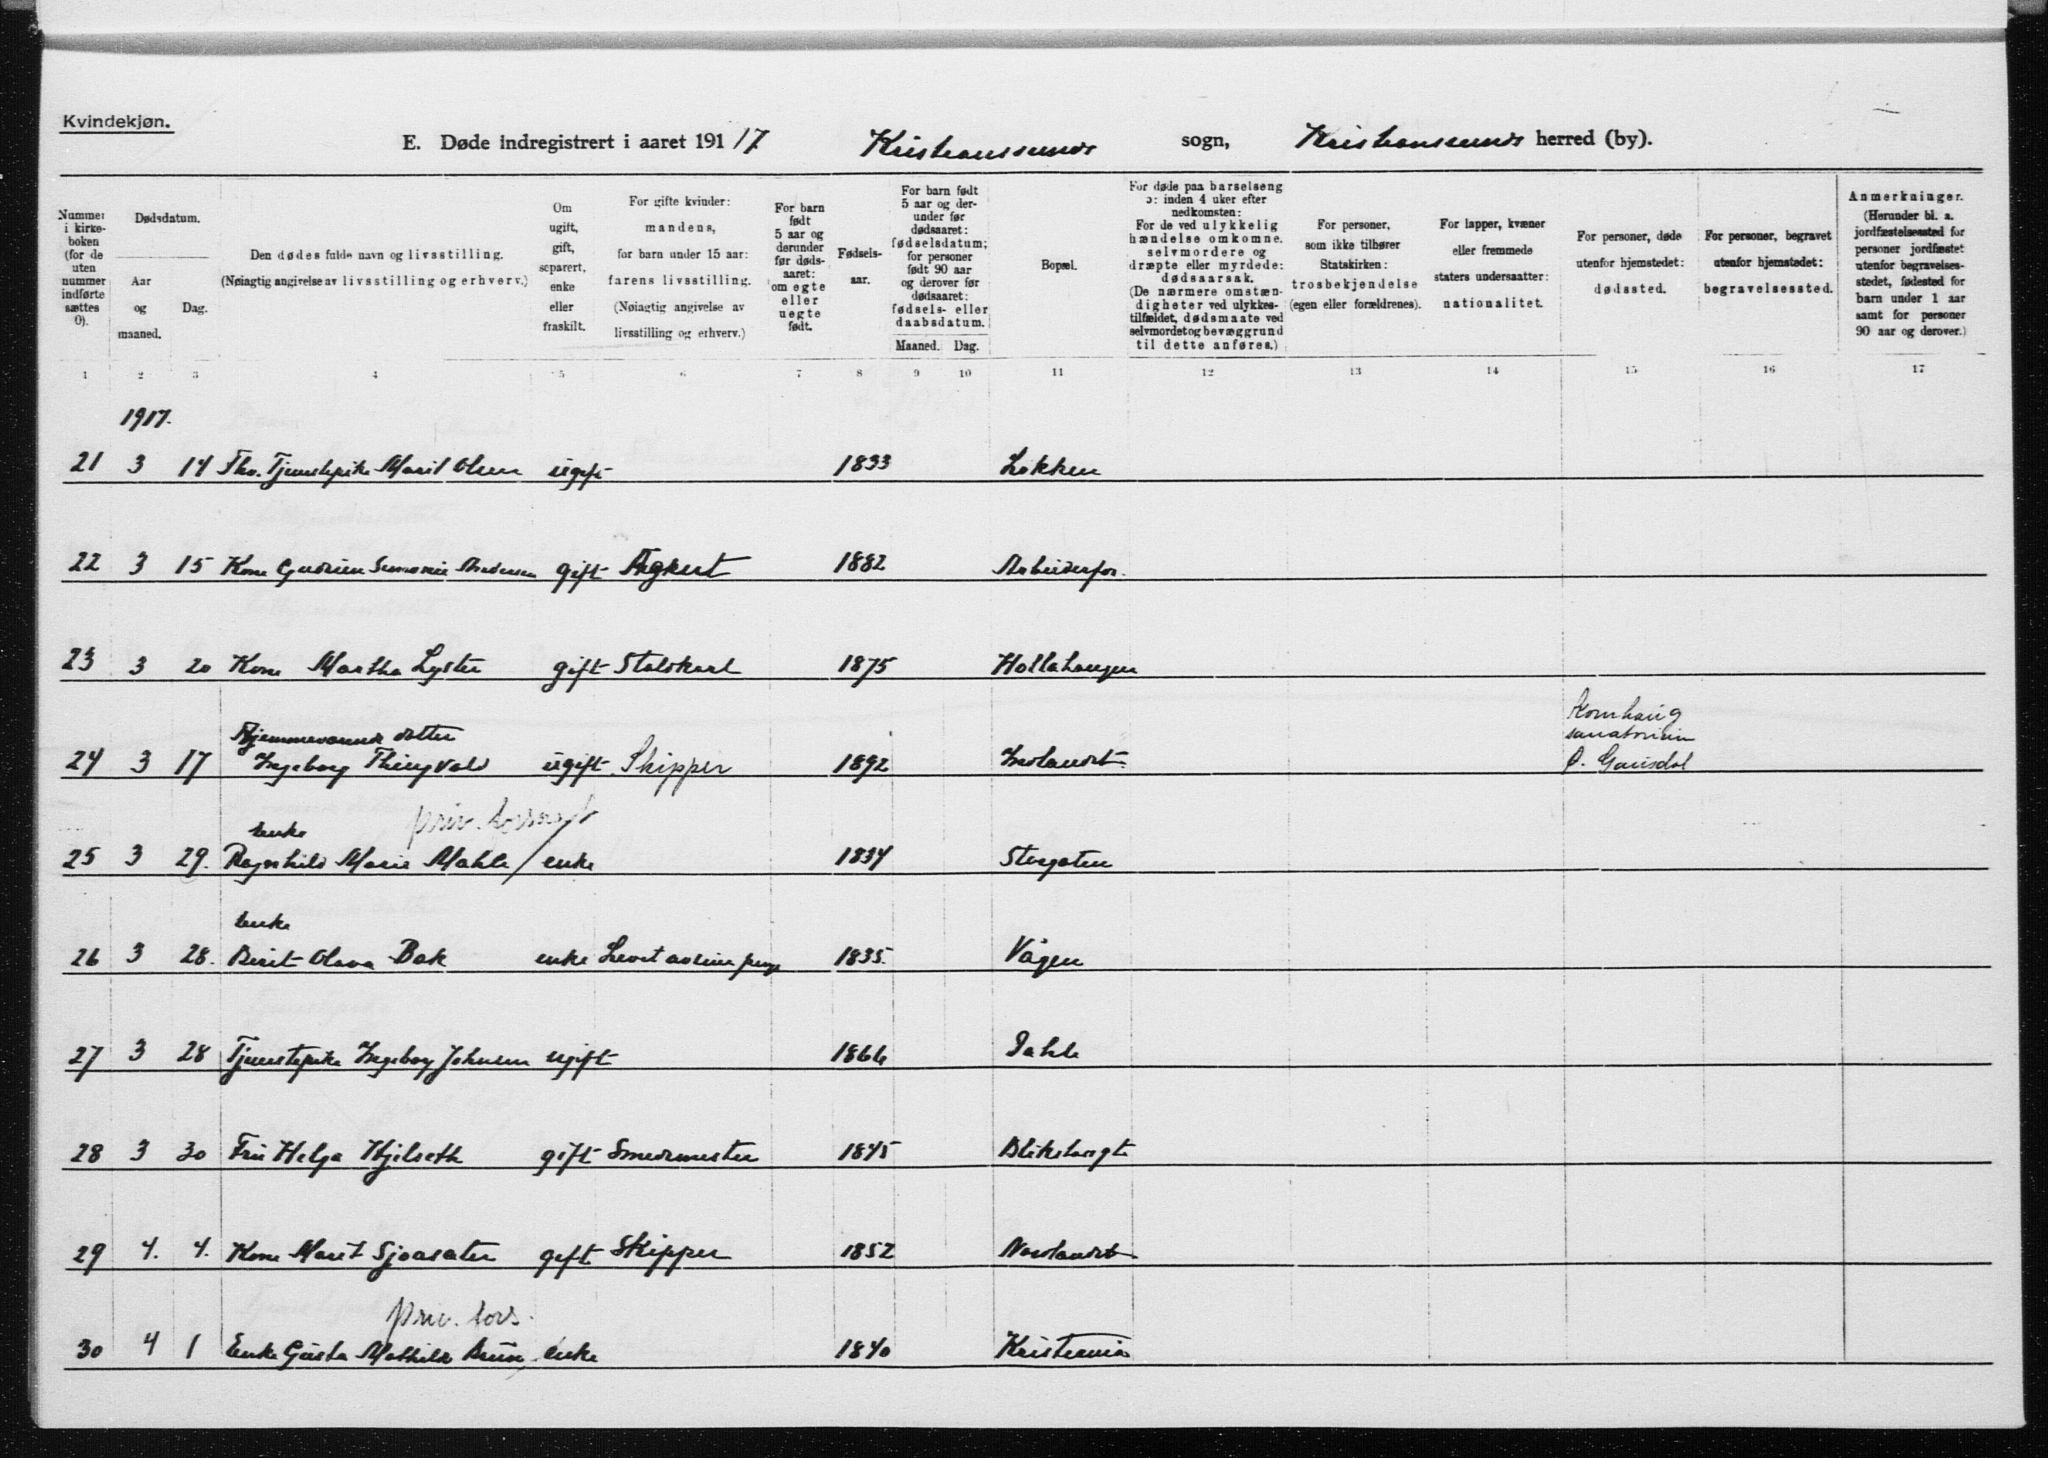 Kvindekjøn.
E. Døde indregistrert i aaret 191 17 Kristianssunds sogn, Kristianssunds herred (by).
Nummer i kirkeboken (for de uten nummer indførte sættes 0).
Dødsdatum.
Aar og maaned.
Dag.
Den dødes fulde navn og livsstilling.
(Nøiagtig angivelse av livsstilling og erhverv.)
Om ugift, gift, separert, enke eller fraskilt.
For gifte kvinder: mandens, for barn under 15 aar: farens livsstilling.
(Nøiagtig angivelse av livsstilling og erhverv.)
For barn født 5 aar og derunder før dødsaaret: om egte eller uegte født.
Fødselsaar.
For barn født 5 aar og derunder før dødsaaret: fødselsdatum; for personer født 90 aar og derover før dødsaaret: fødsels- eller daabsdatum.
Maaned. Dag.
Bopæl.
For døde paa barselseng ɔ: inden 4 uker efter nedkomsten:
For de ved ulykkelig hændelse omkomne, selvmordere og dræpte eller myrdede: dødsaarsak.
(De nærmere omstændigheter ved ulykkestilfældet, dødsmaate ved selvmordet og bevæggrund til dette anføres.)
For personer, som ikke tilhører Statskirken: trosbekjendelse (egen eller forældrenes).
For lapper, kvæner eller fremmede staters undersaatter: nationalitet.
For personer, døde utenfor hjemstedet: dødssted.
For personer, begravet utenfor hjemstedet: begravelsessted.
Anmerkninger.
(Herunder bl. a. jordfæstelsessted for personer jordfæstet utenfor begravelsesstedet, fødested for barn under 1 aar samt for personer 90 aar og derover.)
1 2 3 4 5 6 7 8 9 10 11 12 13 14 15 16 17
1917.
21 3 14 Fhv. Tjenestepike Marit Olsen ugift 1833 Løkken
22 3 15 Kone Gudrun Andersen gift 1882 Arbeiderfor.
23 3 20 Kone Martha Lyster gift Staldkarl 1875 Hollahaugen
Hjemmeværende datter
24 3 17 Ingeborg Thingvold ugift Skipper 1892
Kornhaug
sanatorium
Ø. Gausdal
priv. forsørget
Enke
25 3 29. Ragnhild Marie Mahle / enke 1834 Storgaten
Enke
26 3 28. Berit Olava Bak enke Levet av sine penge 1835. Vågen
27 3 28 Tjenestepike Ingeborg Johnsen ugift 1866 Dahle
28 3 30 Fru Helga Kjelseth gift Smedmester 1845
29 4. 4. Kone Marit Sjøasæter gift Skipper 1852 Nordlandet
priv. fors.
30 4 1 Enke Gusta Mathilde Bruun, enke 1840 Kristiania